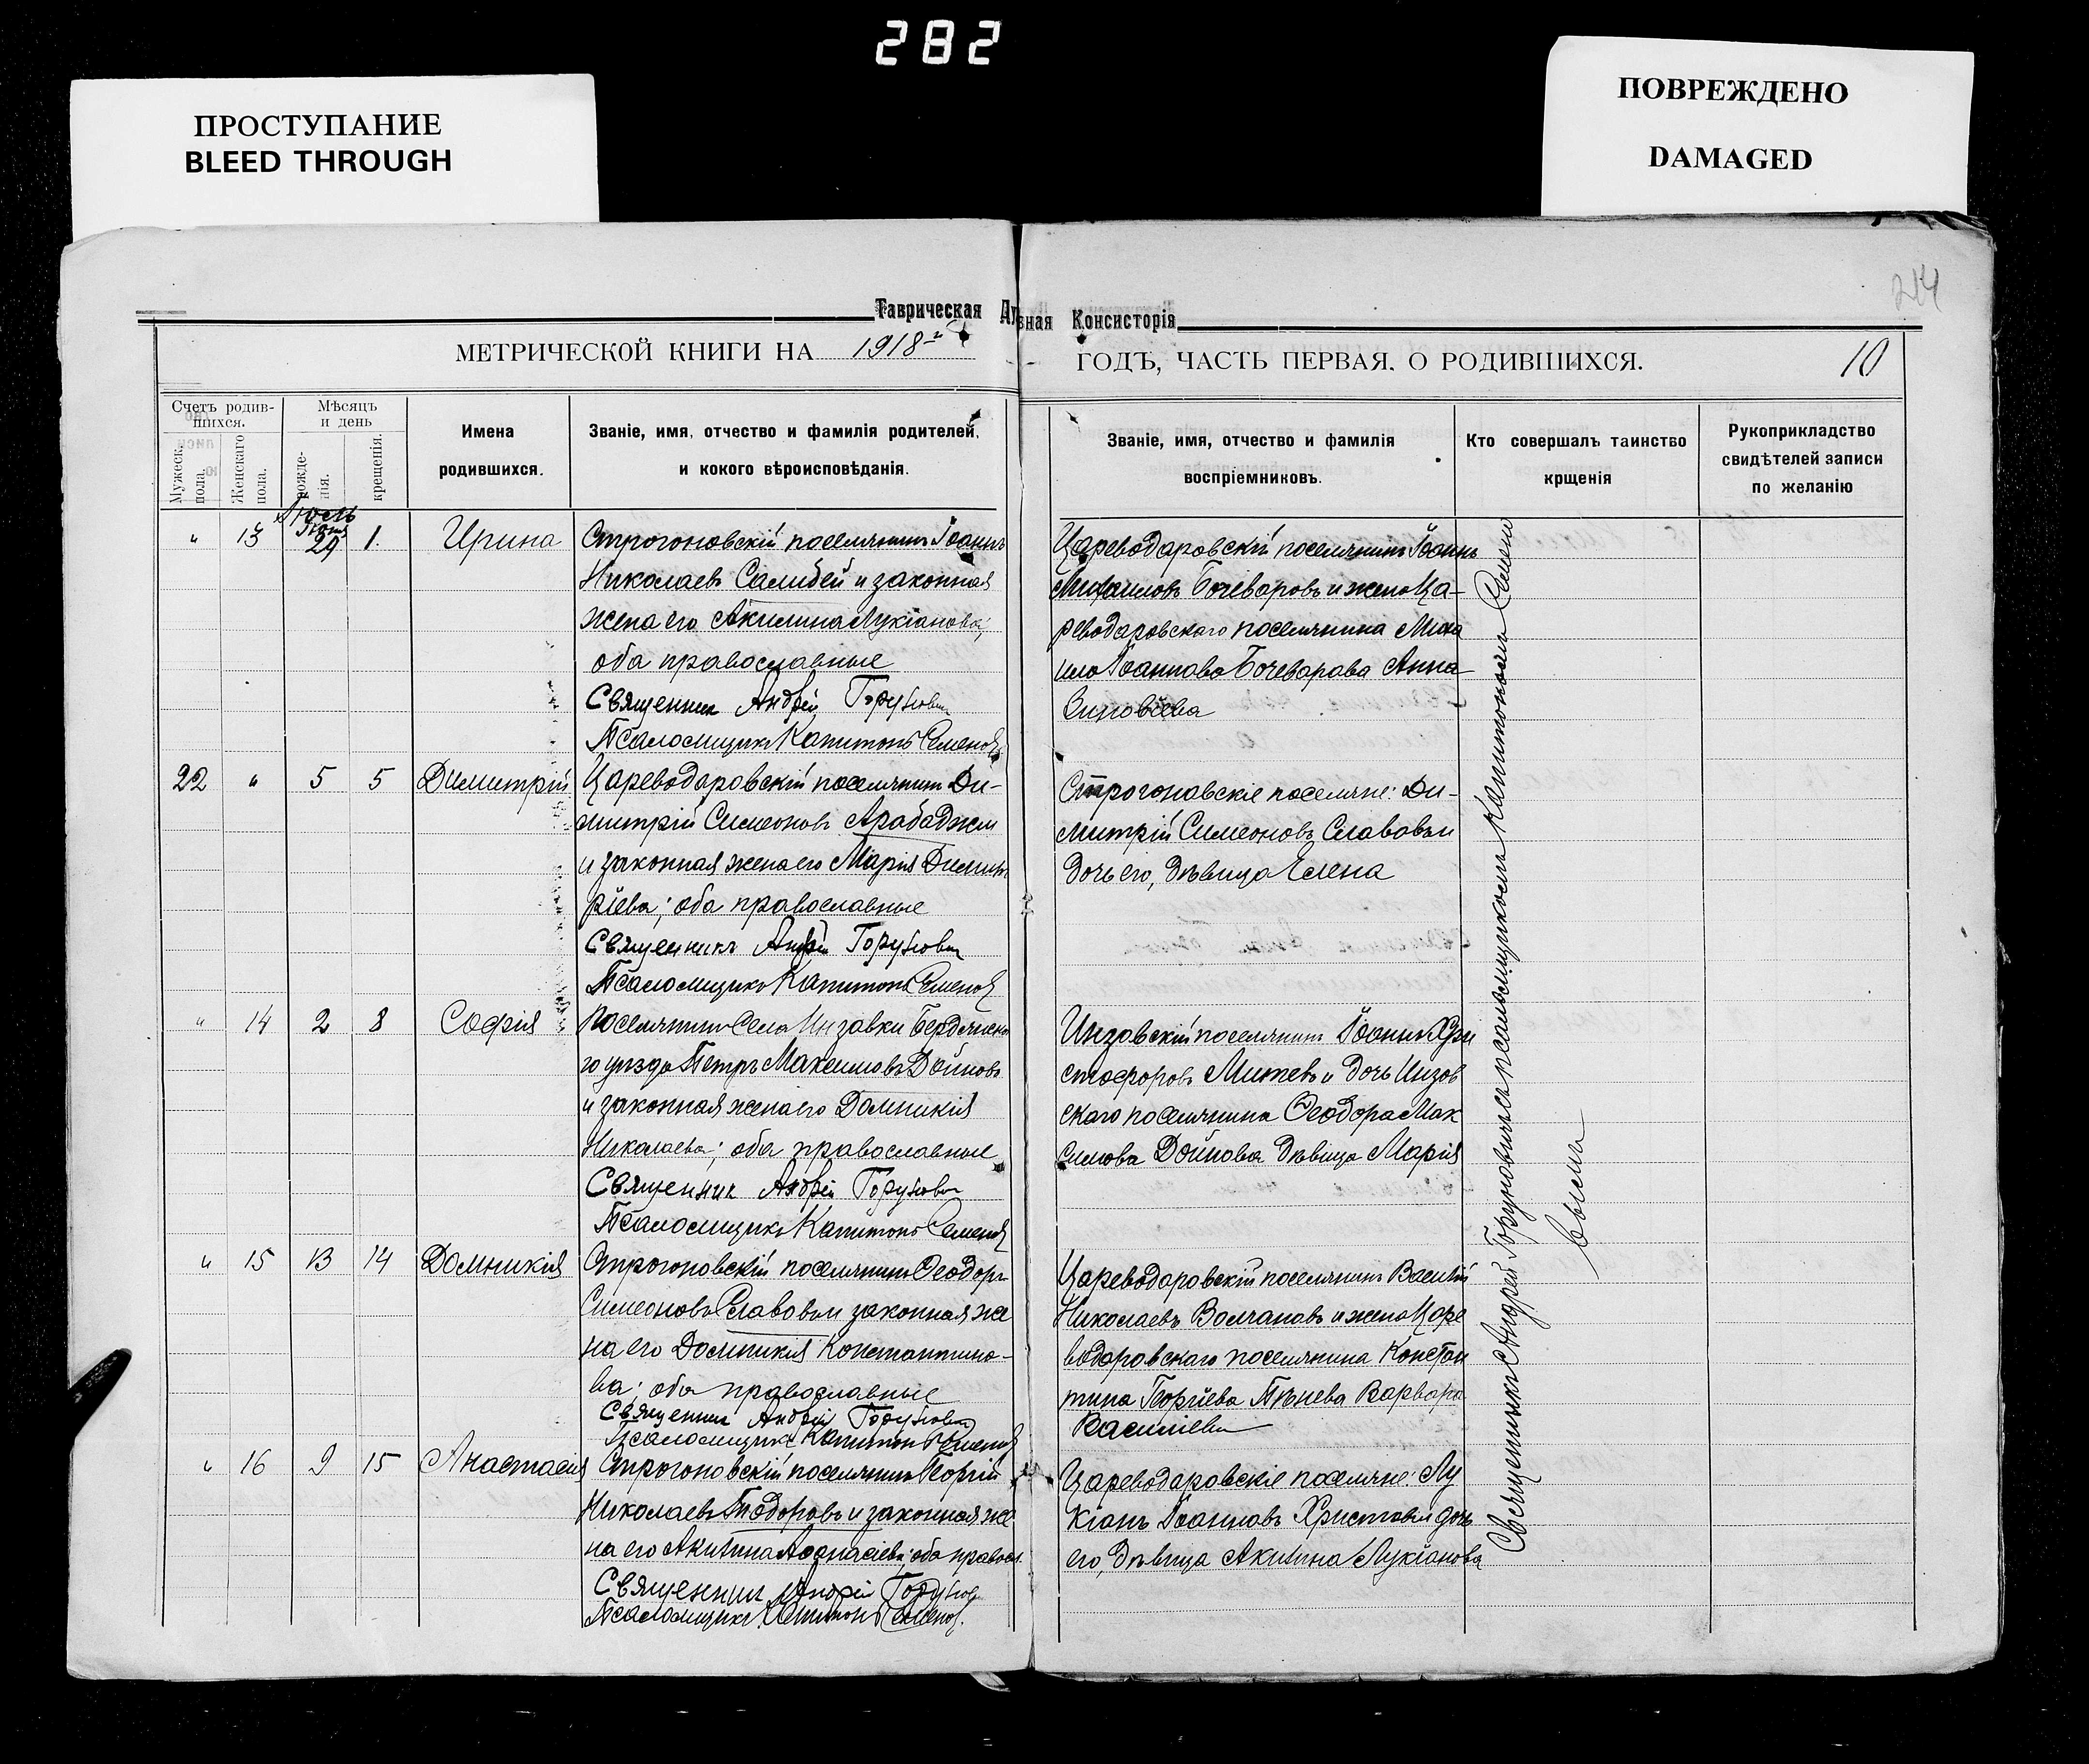 282
ПРОСТУПАНИЕ
BLEED THROUGH
ПОВРЕЖДЕНО
DAMAGED
214
Таврическая
вная Консисторія
МЕТРИЧЕСКОЙ КНИГИ НА 1918 г
ГОДЪ, ЧАСТЬ ПЕРВАЯ, О РОДИВШИХСЯ.
10
Счетъ родив-
шихся.
Мужеск.
пола.
Женскаго
пола.
Мѣсяцъ
и день
рожде-
нія.
крещенія.
Имена
родившихся.
Званіе, имя, отчество и фамилія родителей,
и кокого вѣроисповѣданія.
Званіе, имя, отчество и фамилія
воспріемниковъ.
Кто совершалъ таинство
крщенія
Рукоприкладство
свидѣтелей записи
по желанію
Іюль
Іюня
" 13 29 1. Ирина
Строгоновскій поселянинъ Іоаннъ
Николаевъ Салибей и законная
жена его Акилина Лукіанова;
оба православные
Священник Андрей Горунович
Псаломщикъ Капитонъ Семенов
Цареводаровскій поселянинъ Іоаннъ
Михаиловъ Бочеваровъ и жена Ца-
реводаровскаго поселянина Миха
ила Іоаннова Бочеварова Анна
Зиновіева
22 " 5 5 Димитрій
Цареводаровскій поселянинъ Ди-
митрій Симеоновъ Арабаджи
и законная жена его Марія Димит
ріева; оба православные
Священникъ Андрей Горунович
Псаломщикъ Капитонъ Семенов
Строгоновскіе поселяне: Ди-
митрій Симеоновъ Славовъ и
дочь его, дѣвица Елена
" 14 2 8 Софія
Поселянинъ села Инзовки Бердянска
го уѣзда Петръ Максимовъ Дойновъ
и законная жена его Домникія
Николаева; оба православные
Священник Андрей Горунович
Псаломщикъ Капитонъ Семенов
Инзовскій поселянинъ Іоаннъ Хри
стофоровъ Митевъ и дочь Инзов
скаго поселянина Ѳеодора Мак
симова Дойнова дѣвица Марія
" 15 13 14 Домникія
Строгоновскій поселянинъ Ѳеодоръ
Симеоновъ Славовъ и законная же
на его Домникія Константино-
ва; оба православные
Священник Андрей Горунович
Псаломщикъ Капитон Семенов
Цареводаровскій поселянинъ Василій
Николаевъ Волчановъ и жена Царе
водаровскаго поселянина Констан
тина Георгіева Пѣнева Варвара
Василіева
" 16 9 15 Анастасія
Строгоновскій поселянинъ Георгій
Николаевъ Тодоровъ и законная же
на его Акилина Аѳанасіева; оба правосл.
Священник Андрей Горунов
Псаломщикъ Капитонъ Семенов.
Цареводаровскіе поселяне: Лу
кіанъ Іоанновъ Христовъ и дочь
его, дѣвица Акилина Лукіанова
Священникъ Андрей Горуновичъ съ псаломщикомъ Капитономъ Семено
вымъ